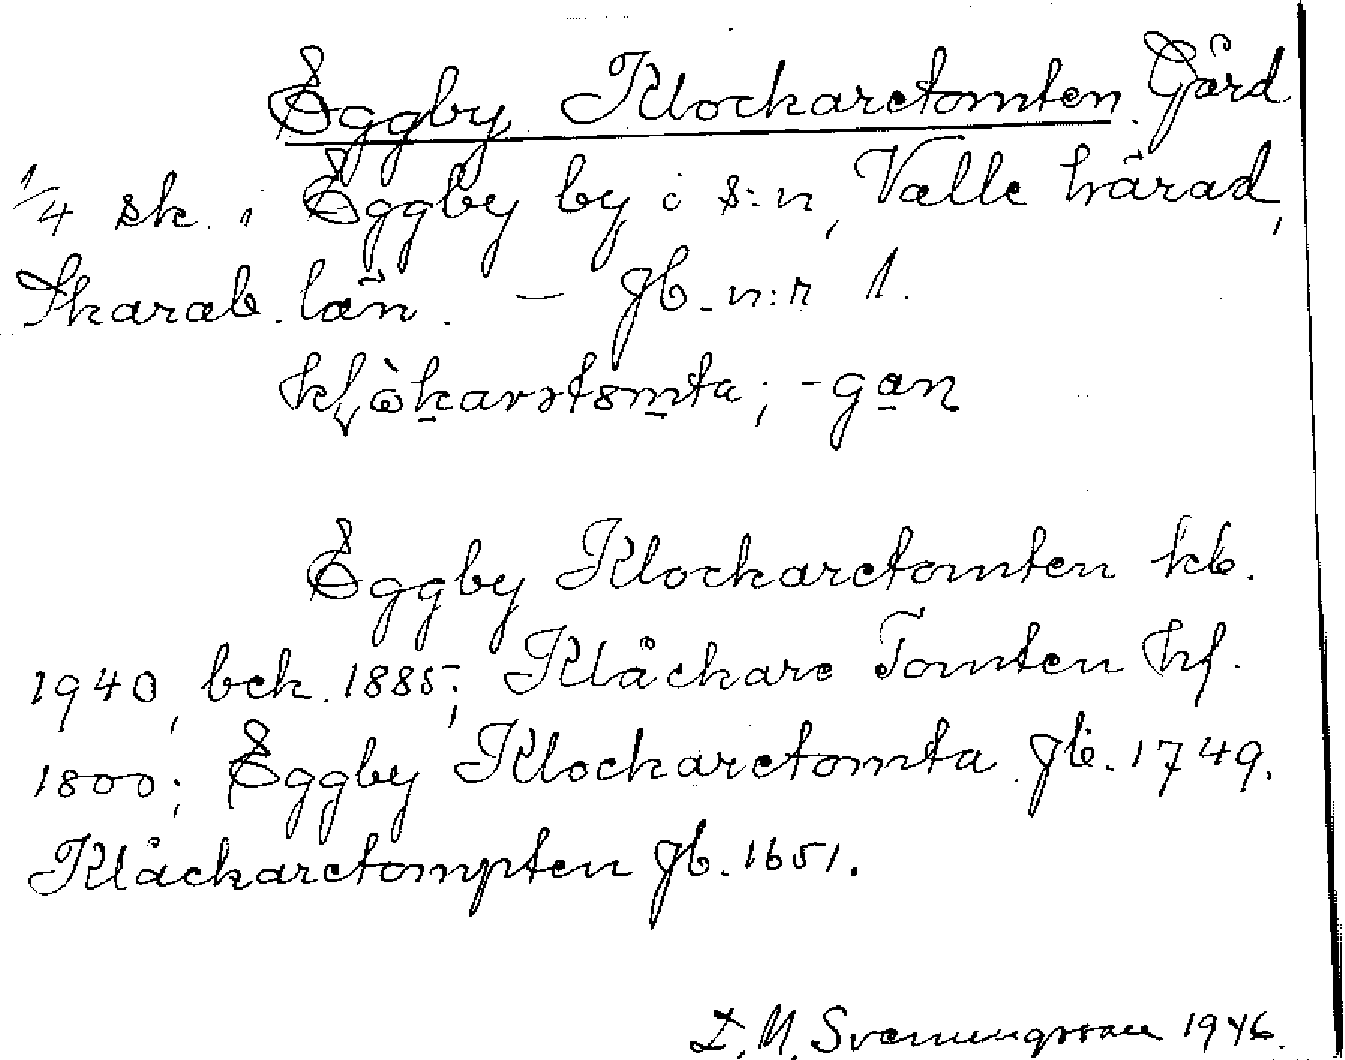 Eggby Klockaretomten. Gård
1/4 sk. i Eggby by i s:n, Valle härad,
Skarab. län. — Jb. n:r 1.
-gan
Eggby Klockaretomten kb.
1940, bek. 1885; Klåckare Tomten hf.
1800; Eggby Klockaretomta jb. 1749.
Klåckaretompten jb. 1651.
Svenungsson 1946.